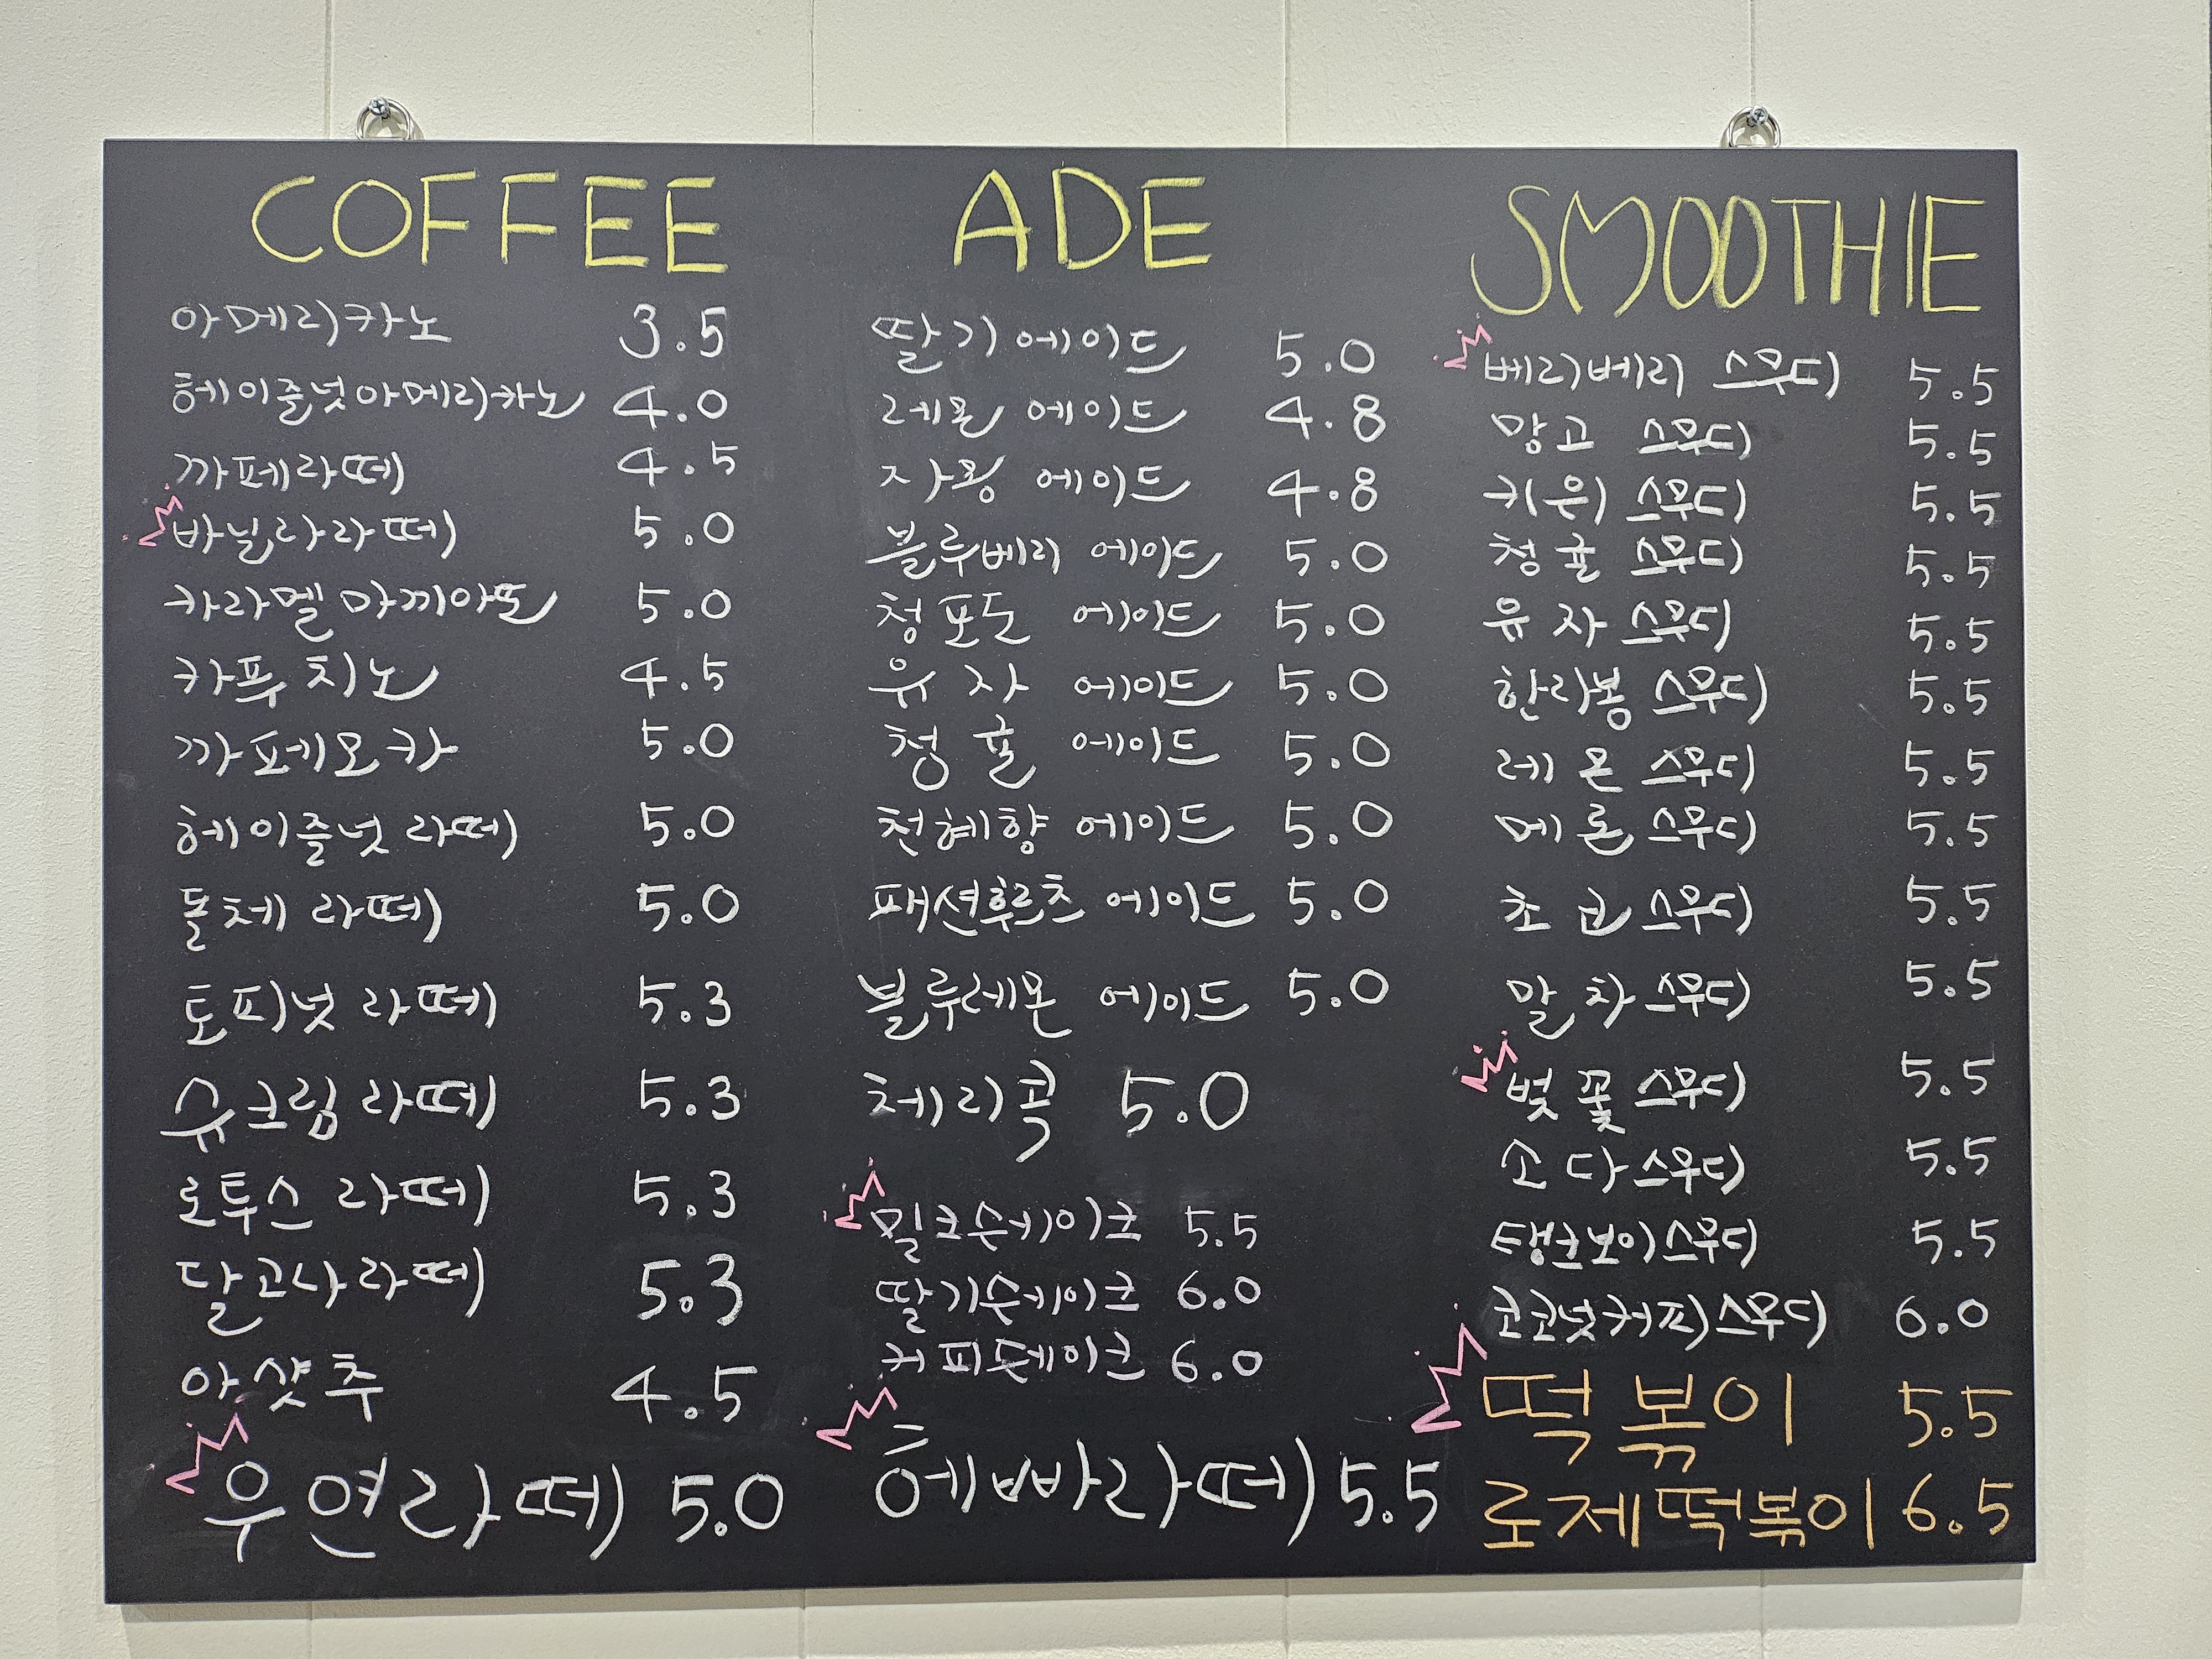 COFFEE
아메리카노 3.5
헤이즐넛아메리카노 4.0
까페라떼 4.5
바닐라라떼 5.0
카라멜마끼아또 5.0
카푸치노 4.5
까페모카 5.0
헤이즐넛라떼 5.0
돌체라떼 5.0
토피넛라떼 5.3
슈크림라떼 5.3
로투스라떼 5.3
달고나라떼 5.3
아샷추 4.5
우연라떼 5.0
ADE
딸기에이드 5.0
레몬 에이드 4.8
자몽 에이드 4.8
블루베리 에이드 5.0
청포도 에이드 5.0
유자 에이드 5.0
청귤 에이드 5.0
천혜향 에이드 5.0
패션후르츠 에이드 5.0
블루레몬 에이드 5.0
체리콕 5.0
밀크쉐이크 5.5
딸기쉐이크 6.0
커피쉐이크 6.0
헤빠라떼 5.5
SMOOTHIE
베리베리 스무디 5.5
망고 스무디 5.5
키위 스무디 5.5
청귤 스무디 5.5
유자 스무디 5.5
한라봉 스무디 5.5
레몬 스무디 5.5
메론 스무디 5.5
초코 스무디 5.5
말차 스무디 5.5
벚꽃 스무디 5.5
소다 스무디 5.5
탱크보이스무디 5.5
코코넛커피스무디 6.0
떡볶이 5.5
로제떡볶이 6.5